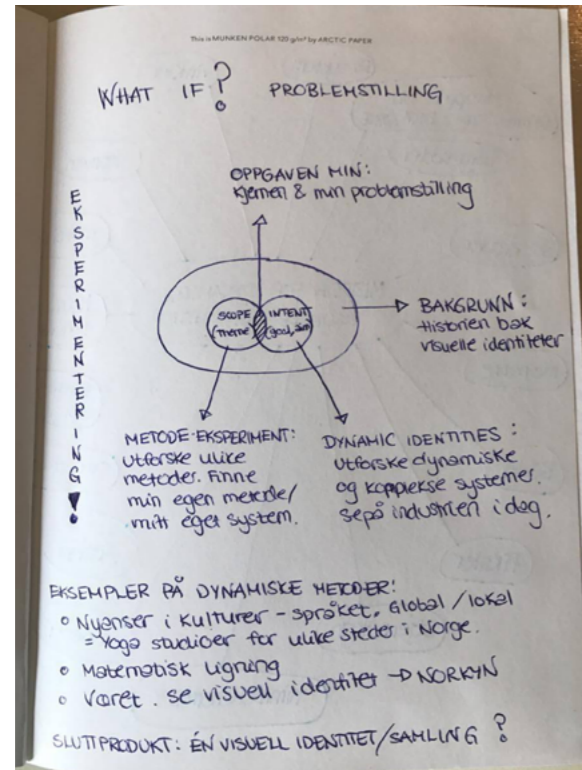 This is MUNKEN POLAR 120 g/m² by ARCTIC PAPER
WHAT IF? PROBLEMSTILLING
OPPGAVEN MIN:
Kjernen & min problemstilling
EKSPERIMENTERING!
SCOPE
(theme)
INTENT
(goal, aim)
BAKGRUNN:
Historien bak
visuelle identiteter
METODE-EKSPERIMENT:
Utforske ulike
metoder. Finne
min egen metode/
mitt eget system.
DYNAMIC IDENTITIES:
Utforske dynamiske
og kopplekse systemer.
se på industrien i dag.
EKSEMPLER PÅ DYNAMISKE METODER:
Nyanser i kulturer - språket. Global/lokal
= Yoga studioer for ulike steder i Norge.
Matematisk ligning
Været. se visuell identitet → NORKYN
SLUTTPRODUKT: ÉN VISUELL IDENTITET/SAMLING?